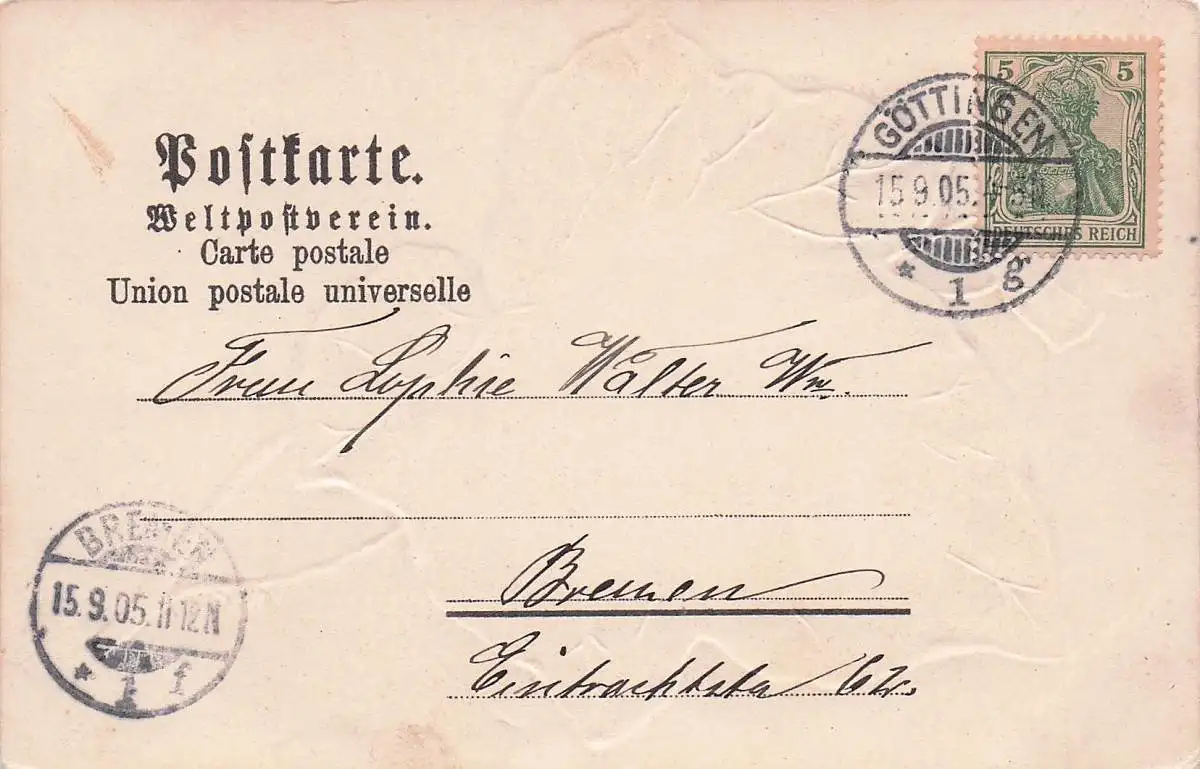 Postkarte.
Weltpostverein.
Carte postale
Union postale universelle
5 5
DEUTSCHES REICH
GÖTTINGEN
15.9.05.
* 1 g
Frau Sophie Walter Ww.
Bremen
BREMEN
15.9.05.11-12N
* 1 f